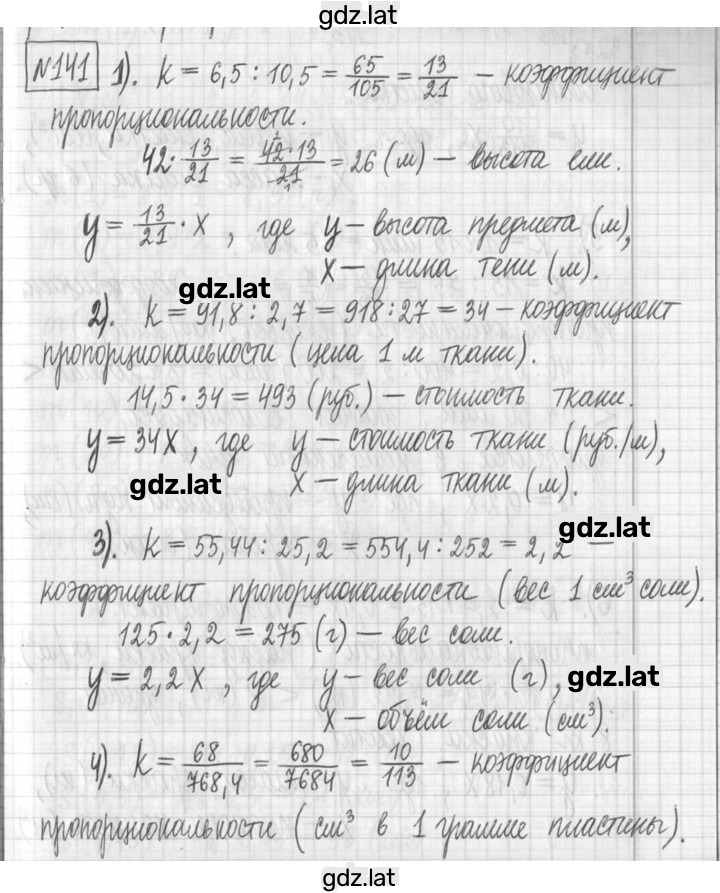 gdz.lat
№141 1). k = 6,5 : 10,5 = 65/105 = 13/21 – коэффициент
пропорциональности.
42 · 13/21 = 42·13/21 = 26 (м) – высота ели.
y = 13/21 · x , где y – высота предмета (м),
x – длина тени (м).
gdz.lat
2). k = 91,8 : 2,7 = 918 : 27 = 34 – коэффициент
пропорциональности (цена 1 м ткани).
14,5 · 34 = 493 (руб.) – стоимость ткани.
y = 34x , где y – стоимость ткани (руб./м),
gdz.lat
x – длина ткани (м).
gdz.lat
3). k = 55,44 : 25,2 = 554,4 : 252 = 2,2 –
коэффициент пропорциональности (вес 1 см³ соли).
125 · 2,2 = 275 (г) – вес соли.
y = 2,2x , где y – вес соли (г),
gdz.lat
x – объём соли (см³).
4). k = 68/768,4 = 680/7684 = 10/113 – коэффициент
пропорциональности (см³ в 1 грамме пластины).
gdz.lat